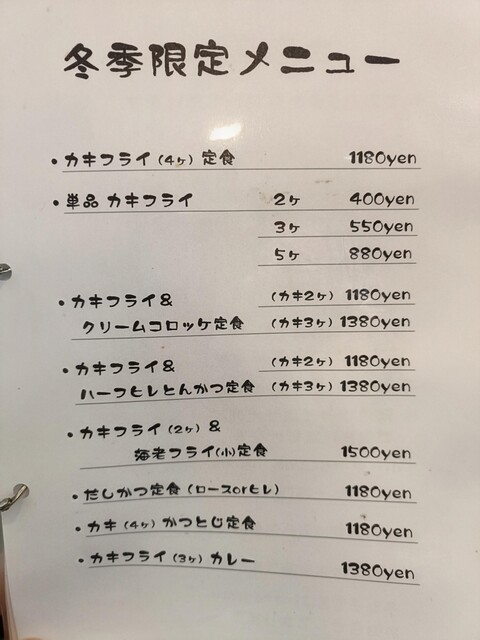 冬季限定メニュー
・カキフライ(4ヶ)定食 1180yen
・単品 カキフライ 2ヶ 400yen
3ヶ 550yen
5ヶ 880yen
・カキフライ& (カキ2ヶ) 1180yen
クリームコロッケ定食 (カキ3ヶ) 1380yen
・カキフライ& (カキ2ヶ) 1180yen
ハーフヒレとんかつ定食 (カキ3ヶ) 1380yen
・カキフライ(2ヶ)&
海老フライ(小)定食 1500yen
・だしかつ定食(ロースorヒレ) 1180yen
・カキ(4ヶ)かつとじ定食 1180yen
・カキフライ(3ヶ)カレー 1380yen